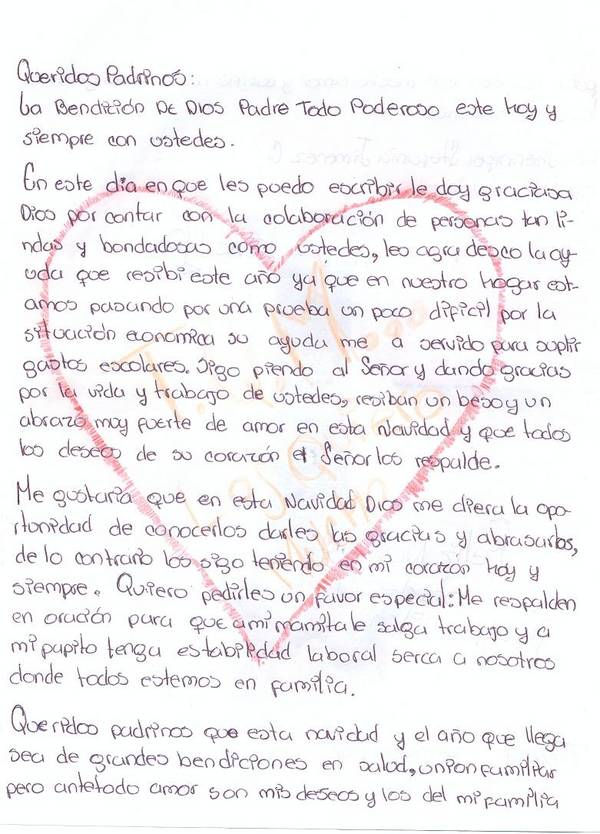 Queridos Padrinos:
La Bendición De Dios Padre Todo Poderoso este hoy y
siempre con ustedes.
En este día en que les puedo escribir le doy gracias a
Dios por contar con la colaboración de personas tan li-
ndas y bondadosas como ustedes, les agradesco la ay-
uda que resibi este año ya que en nuestro hogar est-
amos pasando por una prueba un poco dificil por la
situación economica su ayuda me a servido para suplir
gastos escolares. Sigo piendo al Señor y dando gracias
por la vida y trabajo de ustedes, resiban un beso y un
abrazo muy fuerte de amor en esta Navidad y que todos
los deseos de su corazón el Señor los respalde.
Me gustaria que en esta Navidad Dios me diera la opo-
rtunidad de conocerlos darles las gracias y abrasarlos,
de lo contrario los sigo teniendo en mi corazón hoy y
siempre. Quiero pedirles un favor especial: Me respalden
en oración para que a mi mamita le salga trabajo y a
mi papito tenga estabilidad laboral serca a nosotros
donde todos estemos en familia.
Queridos padrinos que esta navidad y el año que llega
sea de grandes bendiciones en salud, union familiar
pero antetodo amor son mis deseos y los del mi familia